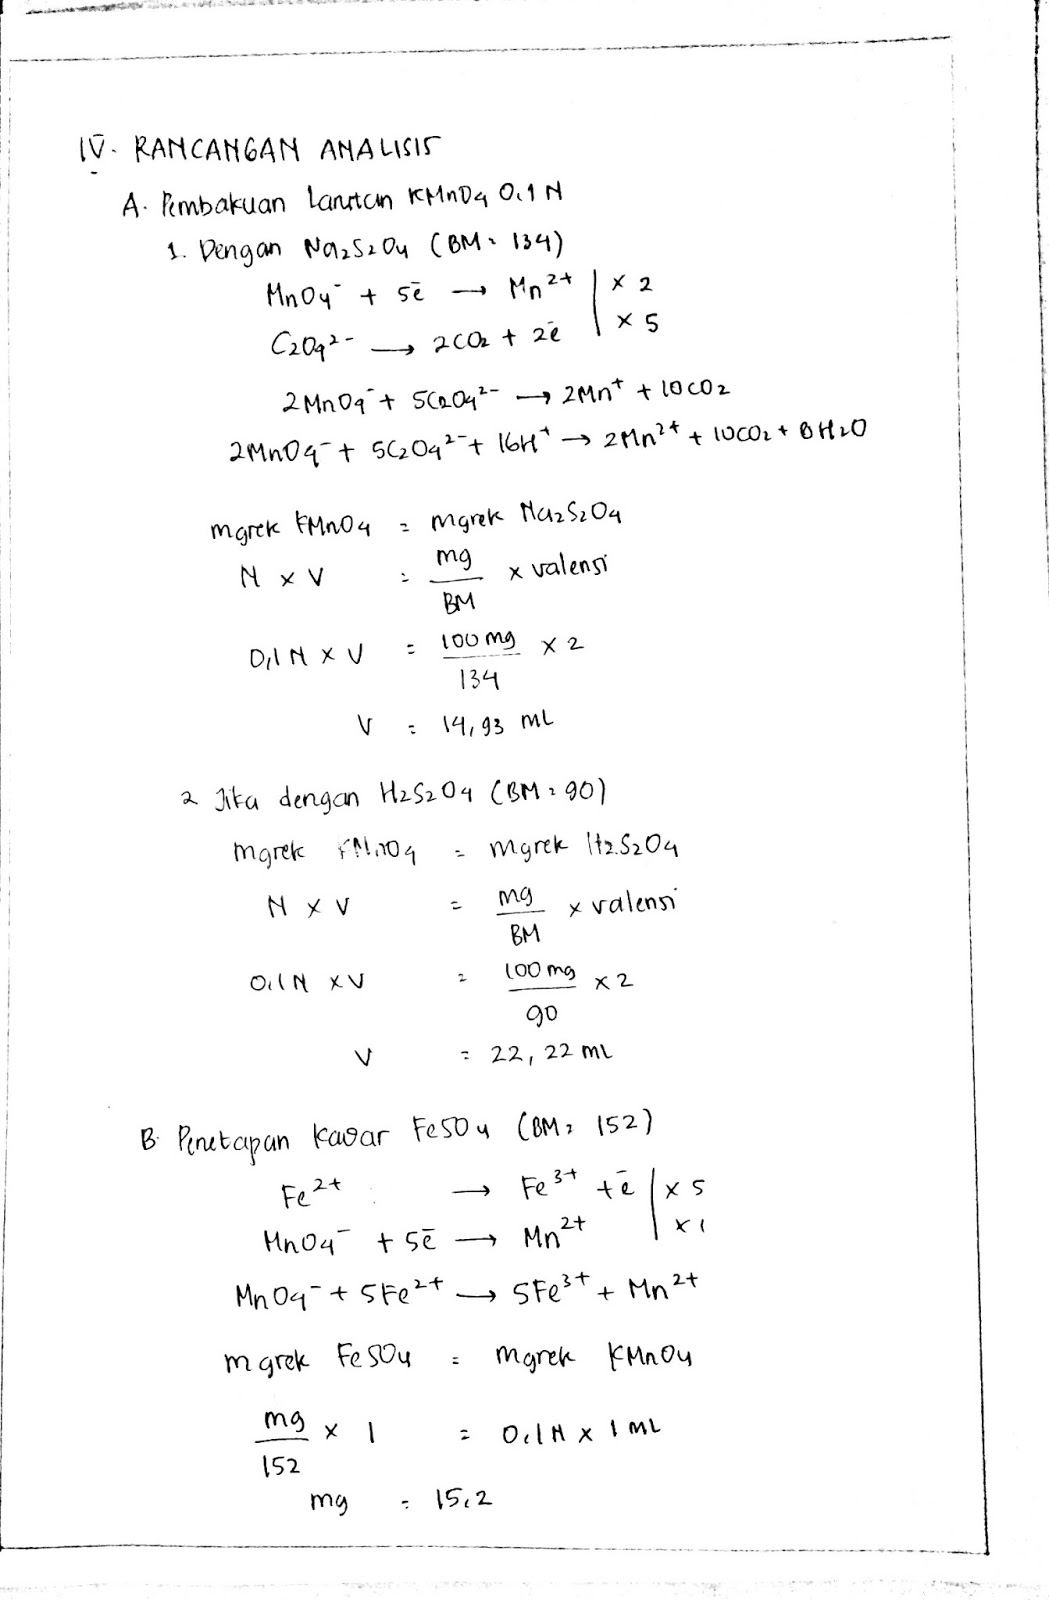 IV. RANCANGAN ANALISIS
A. Pembakuan Larutan KMnO4 0,1 N
1. Dengan Na2S2O4 (BM = 134)
MnO4⁻ + 5ē → Mn²⁺ | x 2
C2O4²⁻ → 2CO2 + 2ē | x 5
2MnO4⁻ + 5C2O4²⁻ → 2Mn⁺ + 10CO2
2MnO4⁻ + 5C2O4²⁻ + 16H⁺ → 2Mn²⁺ + 10CO2 + 8H2O
mgrek KMnO4 = mgrek Na2S2O4
N x V = mg/BM x valensi
0,1 N x V = 100 mg/134 x 2
V = 14,93 mL
2 Jika dengan H2S2O4 (BM = 90)
mgrek KMnO4 = mgrek H2S2O4
N x V = mg/BM x valensi
0,1 N x V = 100 mg/90 x 2
V = 22,22 mL
B. Penetapan Kadar FeSO4 (BM = 152)
Fe²⁺ → Fe³⁺ + ē | x 5
MnO4⁻ + 5ē → Mn²⁺ | x 1
MnO4⁻ + 5Fe²⁺ → 5Fe³⁺ + Mn²⁺
mgrek FeSO4 = mgrek KMnO4
mg/152 x 1 = 0,1 N x 1 mL
mg = 15,2